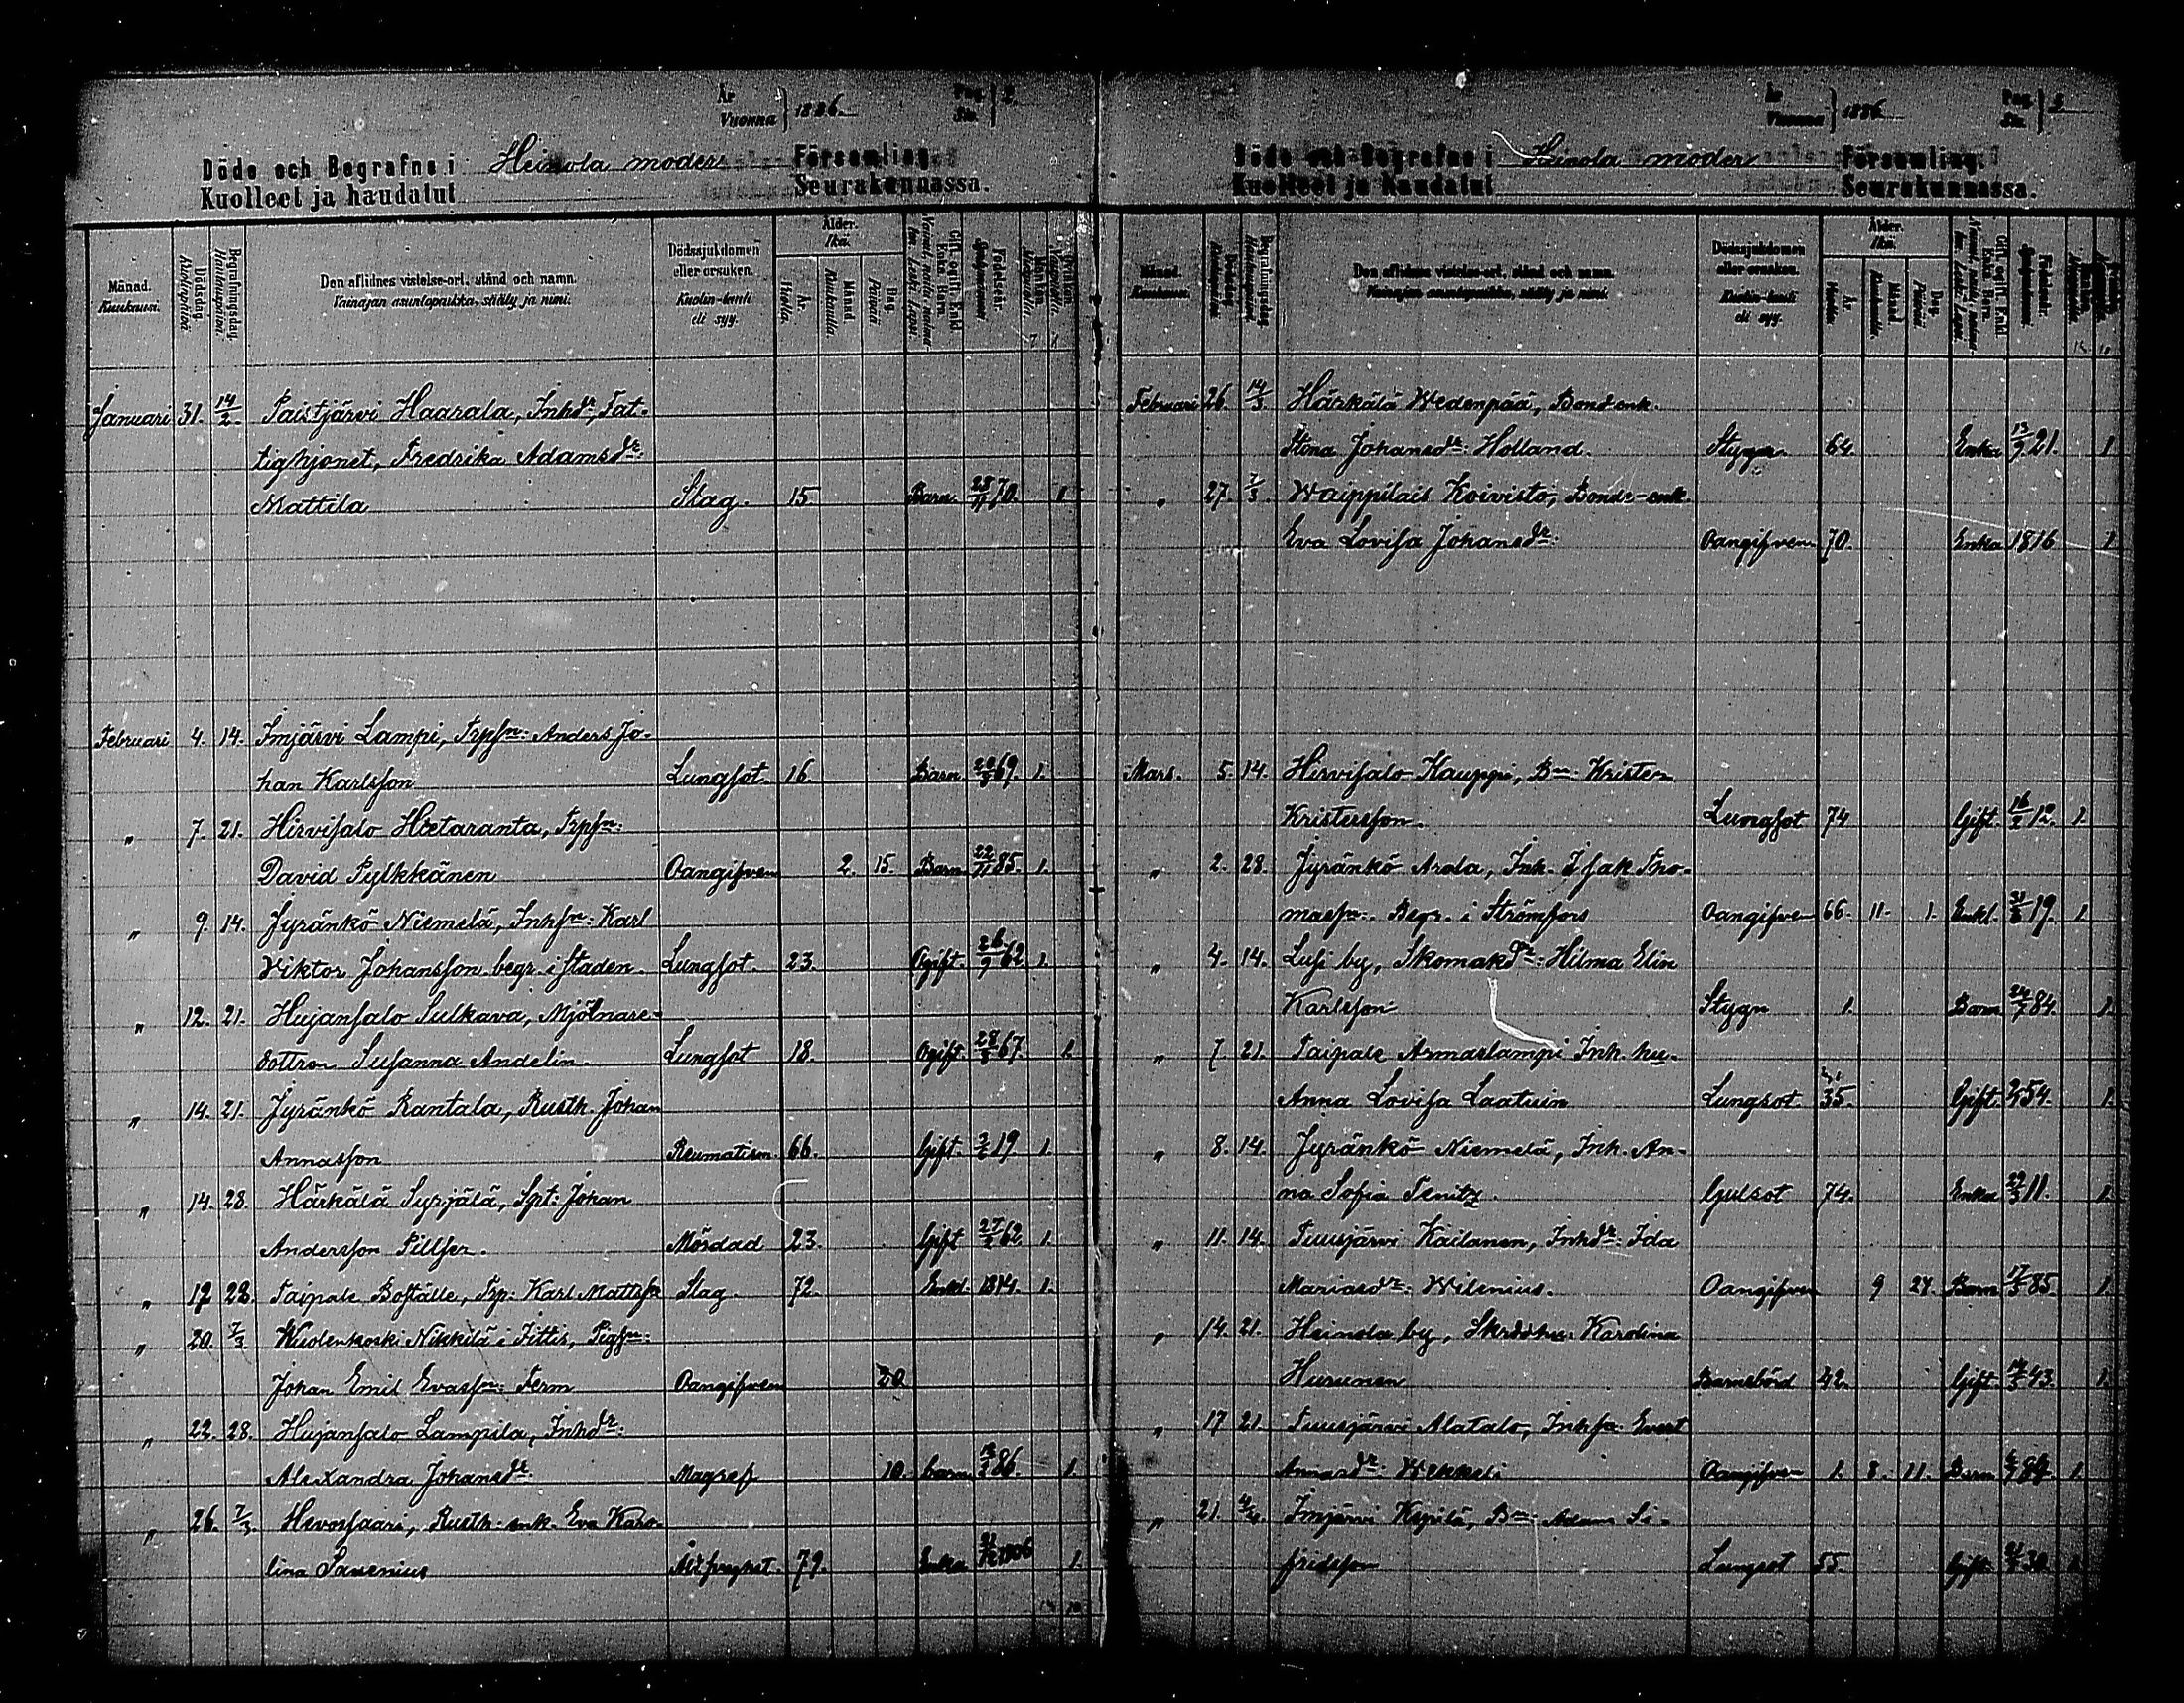 År
Vuonna } 1886. Pag. Siv. } 2.
Döde och Begrafne i Heinola moder Församling.
Kuolleet ja haudatut Seurakunnassa.
Månad. Kuukausi.
Dödsdag. Kuolinpäivä.
Begrafningsdag. Hautauspäivä.
Den aflidnes vistelse-ort, stånd och namn.
Vainajan asuntopaikka, sääty ja nimi.
Dödssjukdomen eller orsaken.
Kuolin-tauti eli syy.
Ålder. Ikä.
År. Vuotta.
Månad. Kuukautta.
Dag. Päivää
Gift, ogift, Enkl. Enka, Barn.
Födelseår.
Mankön. Miehenpuolia.
Januari 31. 14/2. Paistjärvi Haarala, Inhdr, Fat-
tighjonet, Fredrika Adamsdr:
Mattila Slag. 15. Barn 28/11 70. 1
Februari 4. 14. Imjärvi Lampi, Trpsn: Anders Jo-
han Karlsson Lungsot. 16. Barn 69. 1.
„ 7. 21. Hirvisalo Hietaranta, Trpsn:
David Pylkkänen Oangifven 2. 15. Barn 22/11 85. 1.
„ 9. 14. Jyränkö Niemelä, Inhsn: Karl
Viktor Johansson begr. i staden. Lungsot. 23. Ogift. 26/9 62. 1.
„ 12. 21. Hujansalo Sulkava, Mjölnare-
dottren Susanna Andelin. Lungsot 18. Ogift. 67. 1.
„ 14. 21. Jyränkö Rantala, Rusth. Johan
Annasson Reumatism. 66. Gift. 19. 1.
„ 14. 28. Härkälä Syrjälä, Spt: Johan
Andersson Pillfer. Mördad 23. Gift 62. 1.
„ 17 28. Taipale Boställe, Trp: Karl Mattssn Slag. 72. Enkl. 1814. 1.
„ 20. 7/3 Kuolenkoski Nikkilä i Iittis, Pigsn:
Johan Emil Evassn: Term Oangifven 20.
„ 22. 28. Hujansalo Lampila, Inhdr:
Alexandra Johansdr: Magref 10. barn 86. 1.
„ 26. 7/3. Hevossaari, Rusth. enk. Eva Karo-
lina Savenius Ålderdomssvaghet. 79. Enka 1806 1.
År
Vuonna } 1886 Pag. Siv. } 3
Döde och Begrafne i Heinola moder Församling.
Kuolleet ja haudatut Seurakunnassa.
Månad. Kuukausi.
Dödsdag. Kuolinpäivä.
Begrafningsdag. Hautauspäivä.
Den aflidnes vistelse-ort, stånd och namn.
Vainajan asuntopaikka, sääty ja nimi.
Dödssjukdomen eller orsaken.
Kuolin-tauti eli syy.
Ålder. Ikä.
År. Vuotta.
Månad. Kuukautta.
Dag. Päivää
Gift, ogift, Enkl. Enka, Barn.
Födelseår.
Februari 26. 14/3. Härkälä Wedenpää, Bondenk.
Stina Johansdr: Holland. Stygn. 64. Enka 13/9 21. 1
„ 27. 7/3. Waippilais Koivisto, Bonde-enk
Eva Lovisa Johansdr: Oangifven 70. Enka 1816 1
Mars. 5. 14. Hirvisalo Kauppi, Bn: Krister
Kristersson. Lungsot 74 Gift. 16/2 12. 1.
„ 2. 28. Jyränkö Arola, Inh. Isak Tho-
massn: Begr. i Strömfors Oangifven 66. 11. 1. Enkl. 19. 1.
„ 4. 14. Lusi by, Skomakdr: Hilma Elin
Karlsson Stygn 1. Barn 24/7 84. 1.
„ 7. 21. Taipale Armaslampi Inh. hu.
Anna Lovisa Laatuin Lungsot. 35. Gift. 54. 1.
„ 8. 14. Jyränkö Niemelä, Inh. An-
na Sofia Tenitz. Gulsot 74. Enka 11. 1.
„ 11. 14. Tuusjärvi Kailanen, Inhdr: Ida
Mariasdr: Wilenius. Oangifven 9 27. Barn 85. 1.
„ 14. 21. Heinola by, Skrddhu: Karolina
Hurunen Barnsbörd 42. Gift. 14/3 43. 1.
„ 17 21. Tuusjärvi Alatalo, Inhsn: Evert
Annasdr: Wekkeli Oangifven 1. 8. 11. Barn 84. 1.
„ 21. 4/4. Imjärvi Kepilä, Bn: Adam Si-
fridsson Lungsot 55. Gift. 30. 1.